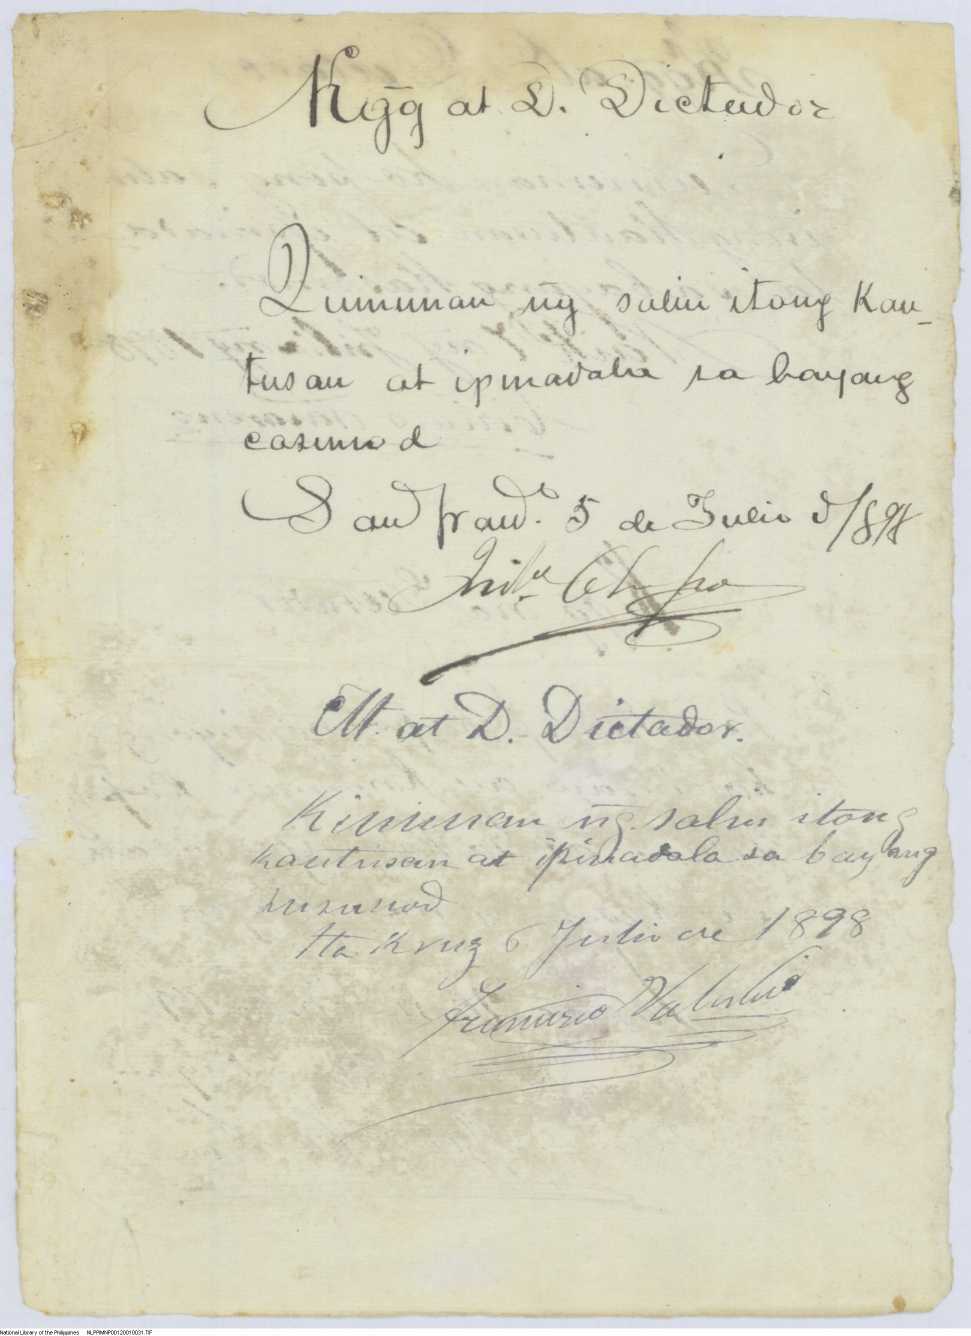 Kgg̃ at D. Dictador
Quinunan ng̃ salin itong Kau-
tusan at ipinadala sa bayang
casunod
San Franco. 5 de Julio d/898
M. at D. Dictador.
Kinunan ng̃ salin itong
kautusan at ipinadala sa bayang
kasunod
Sta Kruz 6 Julio de 1898
Francisco
National Library of the Philippines NLPPIMNP00120010031.TIF